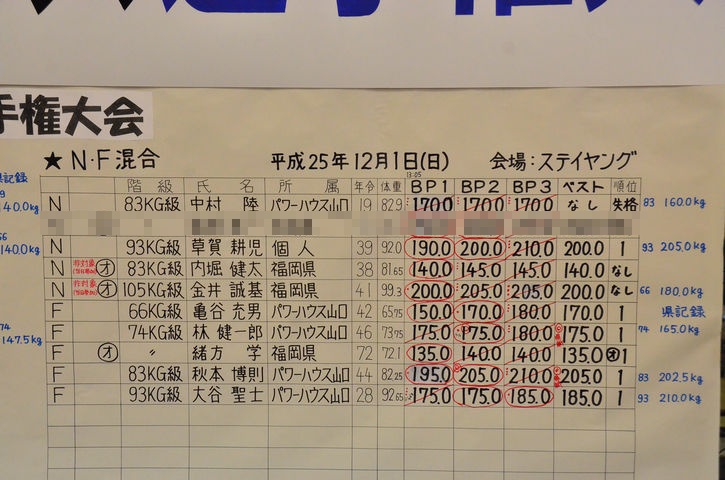 手権大会
★ N・F混合 平成25年12月1日(日) 会場:ステイヤング
県記録
階級 氏名 所属 年令 体重 13:05 BP1 BP2 BP3 ベスト 順位
140.0kg N 83KG級 中村 陸 パワーハウス山口 19 82.9 170.0 170.0 170.0 なし 失格 83 160.0kg
140.0kg N 93KG級 草賀 耕児 個人 39 92.0 190.0 200.0 210.0 200.0 1 93 205.0kg
N 非対象 オ 83KG級 内堀 健太 福岡県 38 81.65 140.0 145.0 145.0 140.0 なし
N 非対象 オ 105KG級 金井 誠基 福岡県 41 99.3 200.0 205.0 205.0 200.0 なし 66 180.0kg
F 66KG級 亀谷 充男 パワーハウス山口 42 65.75 150.0 170.0 180.0 170.0 1 県記録
74 147.5kg F 74KG級 林 健一郎 パワーハウス山口 46 73.75 175.0 175.0 180.0 175.0 1 74 165.0kg
F オ 〃 緒方 学 福岡県 72 72.1 135.0 140.0 140.0 135.0 オ1
F 83KG級 秋本 博則 パワーハウス山口 44 82.25 195.0 205.0 210.0 205.0 1 83 202.5kg
F 93KG級 大谷 聖士 パワーハウス山口 28 92.65 175.0 175.0 185.0 185.0 1 93 210.0kg